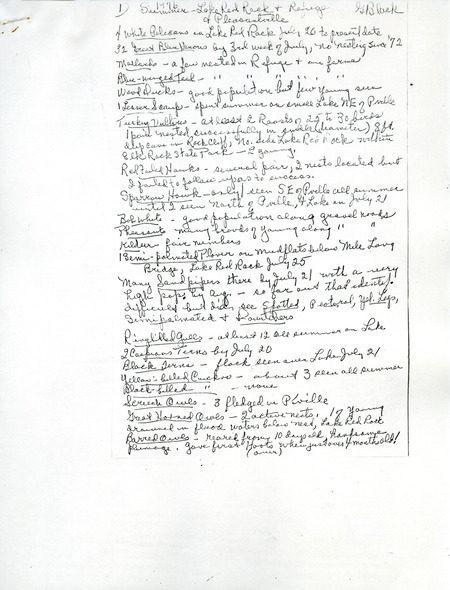 1) Summer - Lake Red Rock & Refuge G Black
& Pleasantville
4 White Pelicans on Lake Red Rock July 20 to present date
32 Great Blue Herons by 3rd week of July, no nesting since '72
Mallards - a few nested in Refuge & on farms
Blue-winged Teal - " " " " "
Wood Ducks - good population but few young seen
1 Lesser Scaup - spent summer on small Lake NE of Pville
Turkey Vultures - at least 2 Roosts of 25 to 30 birds
1 pair nested successfully in small (diameter) 8 ft
deep cave in Rock Cliff, No. side Lake Red Rock within
Elk Rock State Park - 2 young.
Red-tailed Hawks - several pair, 2 nests located but
I failed to follow ups to success.
Sparrow Hawk - only 1 seen SE of Pville all summer
until 2 seen North of Pville, & Lake on July 21
Bob White - good population along gravel roads
Pheasants many broods of young along " "
Killdeer - fair numbers
1 Semi-palmated Plover on Mudflats below Mile Long
Bridge, Lake Red Rock July 25
Many Sandpipers there by July 21 with a very
high pop. by Aug - so far out that ident.
difficult but did see Spotted, Pectoral, Yel. Legs,
Semipalmated & Dowitchers
Ringbilled Gulls - at least 12 all summer on Lake
2 Caspian Terns by July 20
Black Terns - flock seen over Lake July 21
Yellow-billed Cuckoo - about 3 seen all summer
Black-billed " - none
Screech Owls - 3 fledged in P'ville
Great Horned Owls - 2 active nests, 1 young
drowned in flood waters below nest, Lake Red Rock
Barred Owls - reared from 10 days old, handsome
plumage. Gave first hoots when just over 4 months old!
(over)